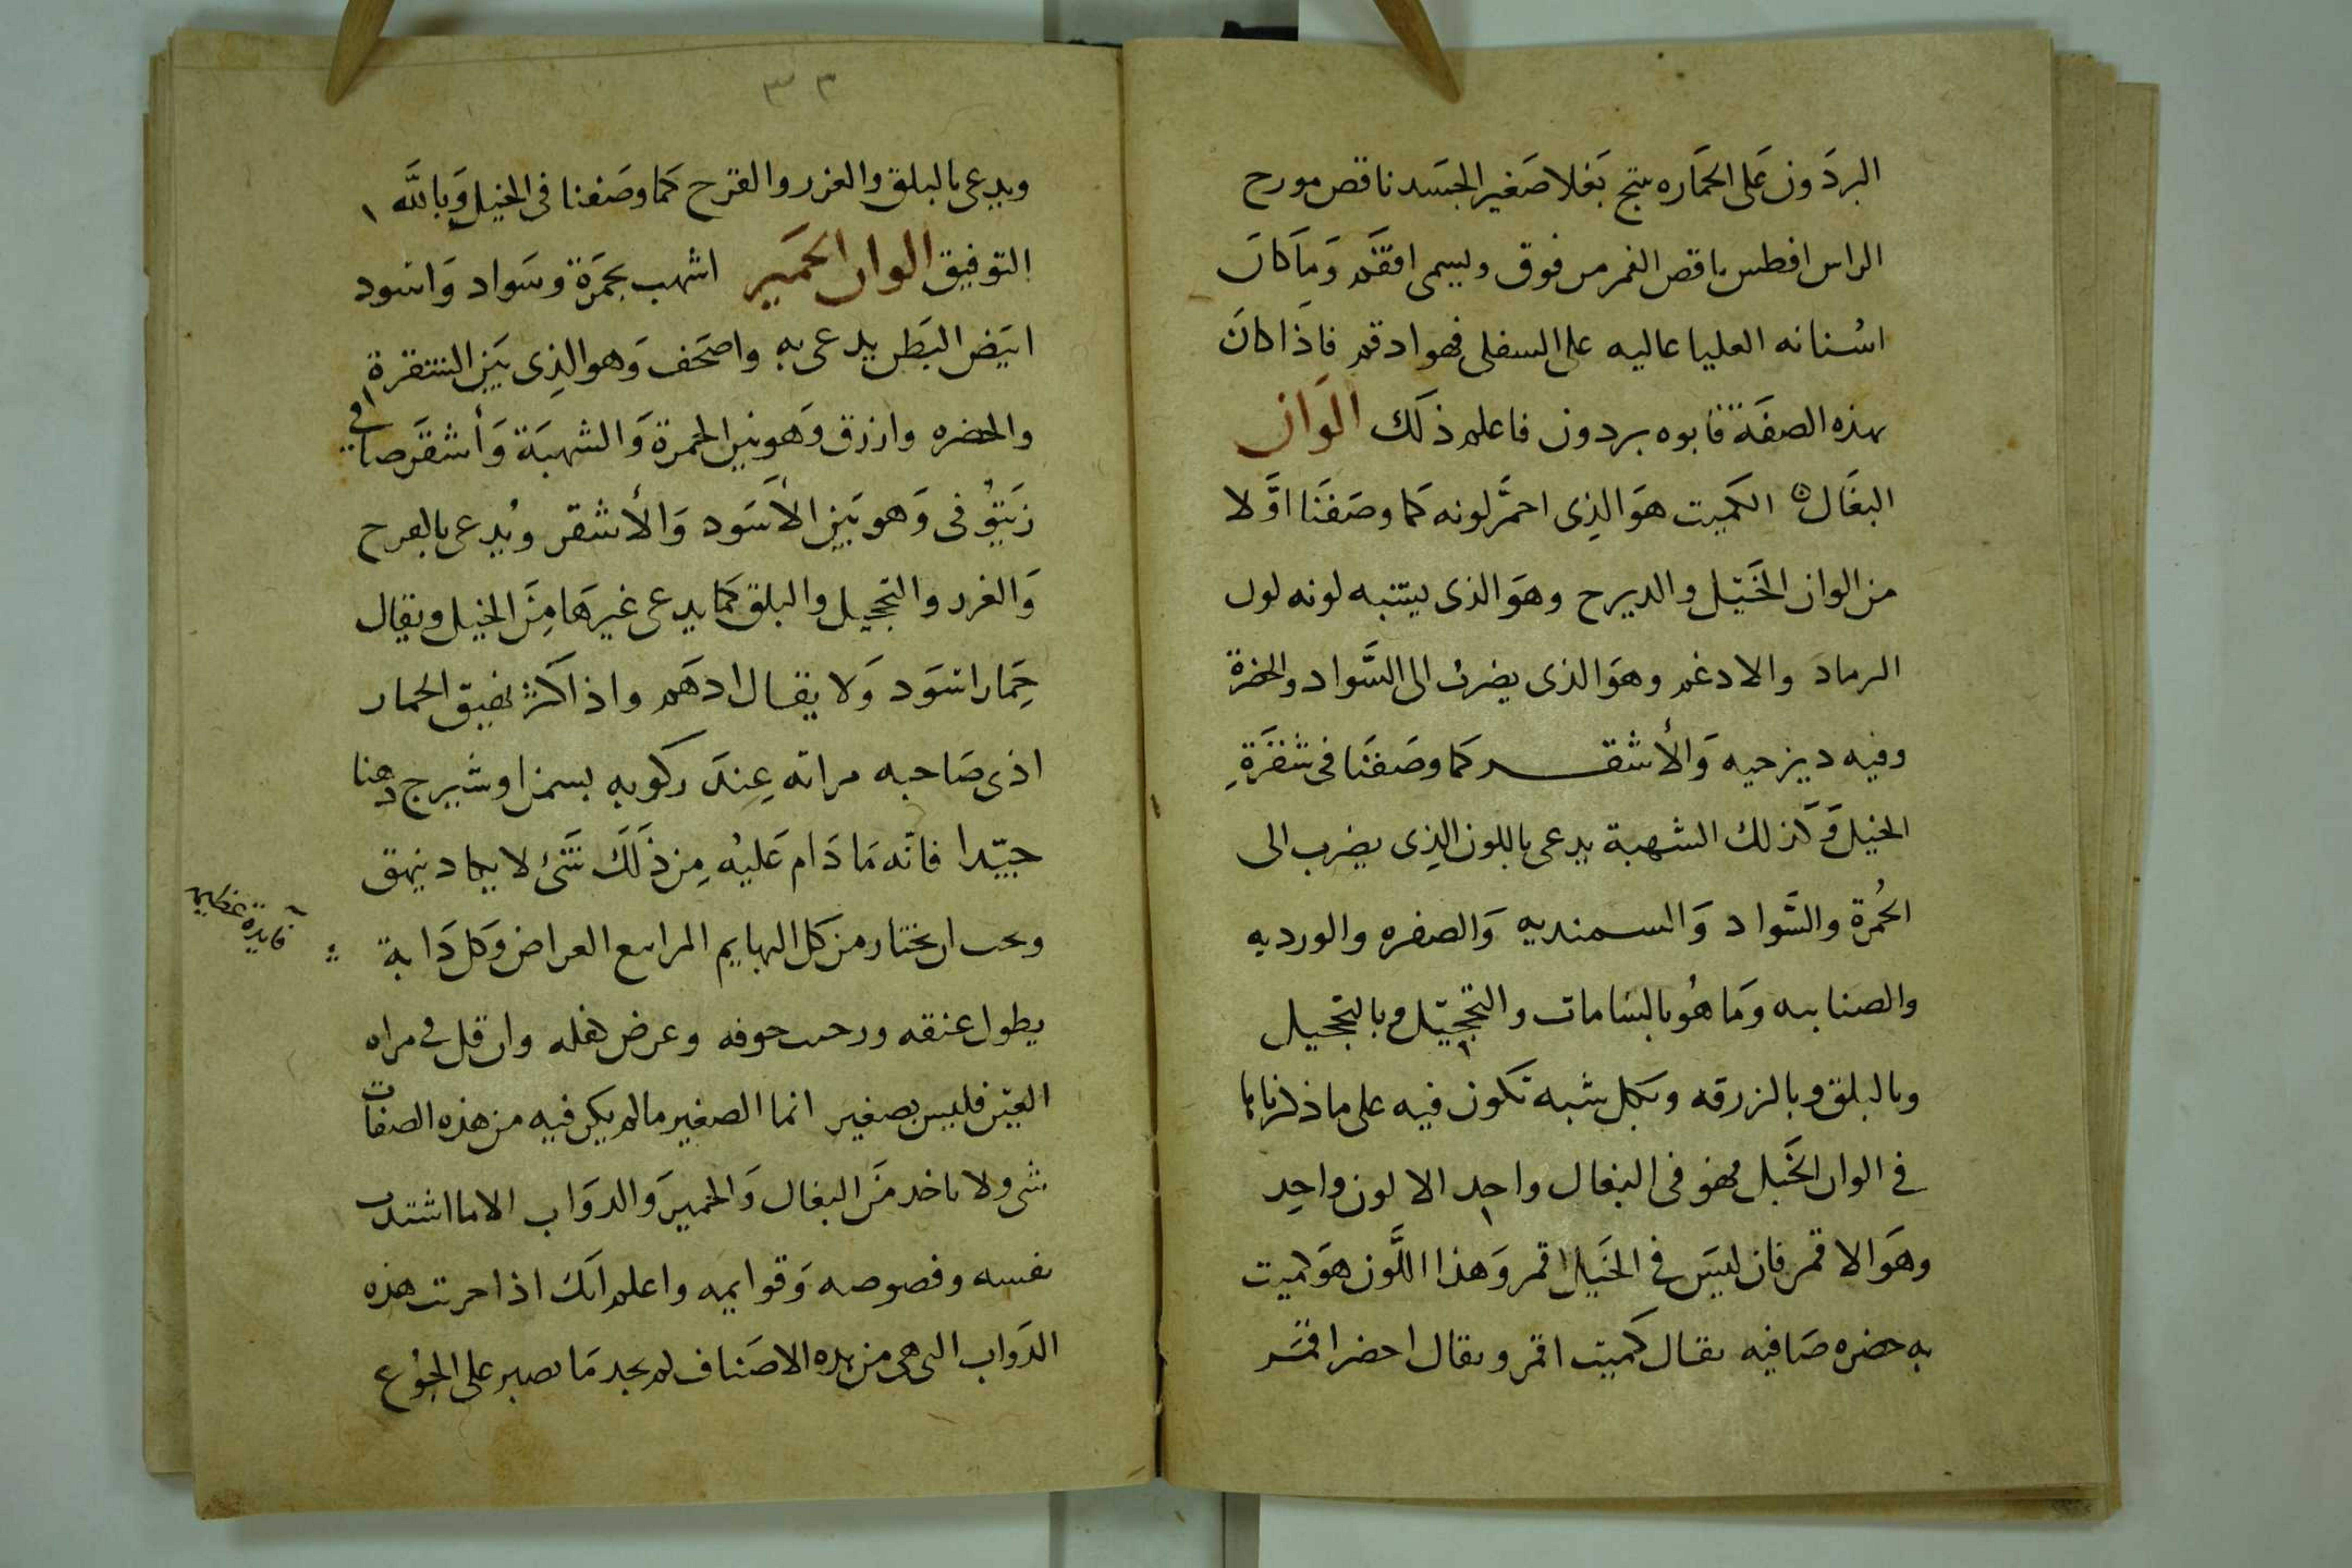 البردَون عَلى الحمَاره ينتج بَغلا صَغير الجسَد ناقص مورح
الراس افطس ناقص الفم من فوق ويسمى افقم وَما كانَ
اسْنانه العليا عاليه على السفلى فهو ادقم فاذَا كانَ
بهذه الصفَة فابوه بردون فاعلم ذلَك الوان
البغَال الكميت هوَ الذِى احمَّر لونه كما وصَفنَا اوَّلا
من الوان الخَيل والديرح وهوَ الذى يشبه لونه لون
الرماد والادغم وهوَ الذى يضرب الى السَّواد والخضرة
وفيه ديزحيه وَالأشقر كما وصَفنَا فى شقرَةِ
الخيل وَكذلك الشهبة يدعى باللون الذِى يضرب الى
الحُمرة والسَّواد وَالسمنديه وَالصفره والورديه
والصنابيه وَما هُو بالشامات والتحجيل وبالتحجيل
وبالبلق وبالزرقه وبكل شبه تكون فيه على ما ذكرنا
فى الوان الخَيل فهو فى البغال واحد الا لون واحِد
وهوَ الاقمر فان ليسَ فى الخَيل اقمر وَهذا اللَّون هوَ كميت
به خضره صَافيه يقال كميت اقمر ويقال اخضر اقمَر
٣٣
ويدعى بالبلق والغرر والقرح كما وصَفنا فى الخيل وَبالله
التوفيق الوان الحمَير اشهب بحمرَة وسَواد وَاسود
ابيَض البَطن يدعى به واصحَف وَهو الذِى بَين الشقرة
والخضره وازرق وَهو بين الحمرة وَالشهبَة وَأشقَر صافى
زَيتُونى وَهو بَين الأسَود وَالأشقر ويُدعى بالقرح
وَالغرر والتحجيل والبلق كما يدعى غيرهَا مِنَ الخيل ويقال
حِمَار اسَود وَلا يقال ادهَم واذا كثر نهيق الحمار
اذى صَاحبه مراته عِندَ ركوبه بسمن او شيرج دهنا
جيّدا فانّه مَا دَام عَليُه مِن ذلَكَ شَئ لا يكاد ينهق
ويجب ان يختار من كل البهايم المرابع العراض وَكل دَابة
فايدة عظيمه
يطول عنقه ورحب جوفه وعرض كفله وان قل فى مراه
العيَن فليس بصغير انما الصغير ما لم يكن فيه من هذه الصفات
شى ولا ياخد مَن البغال وَالحمير وَالدوَاب الا ما اشتدت
نفسه وفصوصه وَقوايمه واعلم انكَ اذا حربت هذه
الدَواب التى هى من هذه الاصَناف لم يجد مَا يصبر على الجوُع